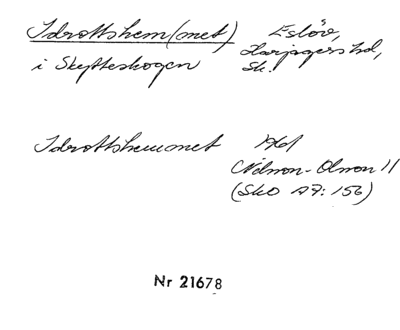 Idrottshem(met) Eslöv,
i Skytteskogen Harjagers hd,
Sk.
Idrottshemmet
Nilsson-Olsson 11
(SkO A7: 156)
Nr 21678